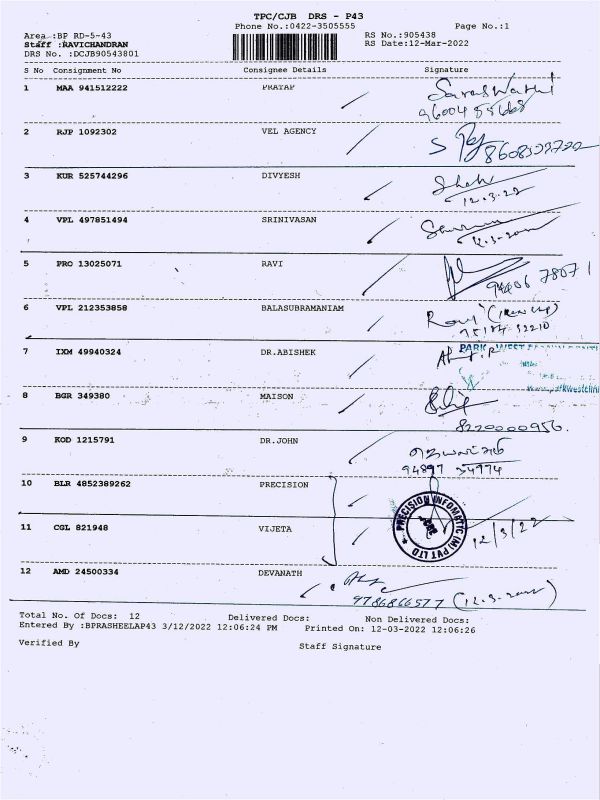 TPC/CJB DRS - P43
Phone No.:0422-3505555 Page No.:1
Area :BP RD-5-43 RS No.:905438
Staff :RAVICHANDRAN RS Date:12-Mar-2022
DRS No. :DCJB90543801
S No Consignment No Consignee Details Signature
1 MAA 941512222 PRATAP
2 RJP 1092302 VEL AGENCY
3 KUR 525744296 DIVYESH
12.3.22
4 VPL 497851494 SRINIVASAN
5 PRO 13025071 RAVI
6 VPL 212353858 BALASUBRAMANIAM
7 IXM 49940324 DR.ABISHEK PARK WEST
8 BGR 349380 MAISON
8220000956.
9 KOD 1215791 DR.JOHN
94897 54974
10 BLR 4852389262 PRECISION
PRECISION INFOMATIC (M) PVT LTD
11 CGL 821948 VIJETA 12/3/22
12 AMD 24500334 DEVANATH
9786866577
Total No. Of Docs: 12 Delivered Docs: Non Delivered Docs:
Entered By :BPRASHEELAP43 3/12/2022 12:06:24 PM Printed On: 12-03-2022 12:06:26
Verified By Staff Signature